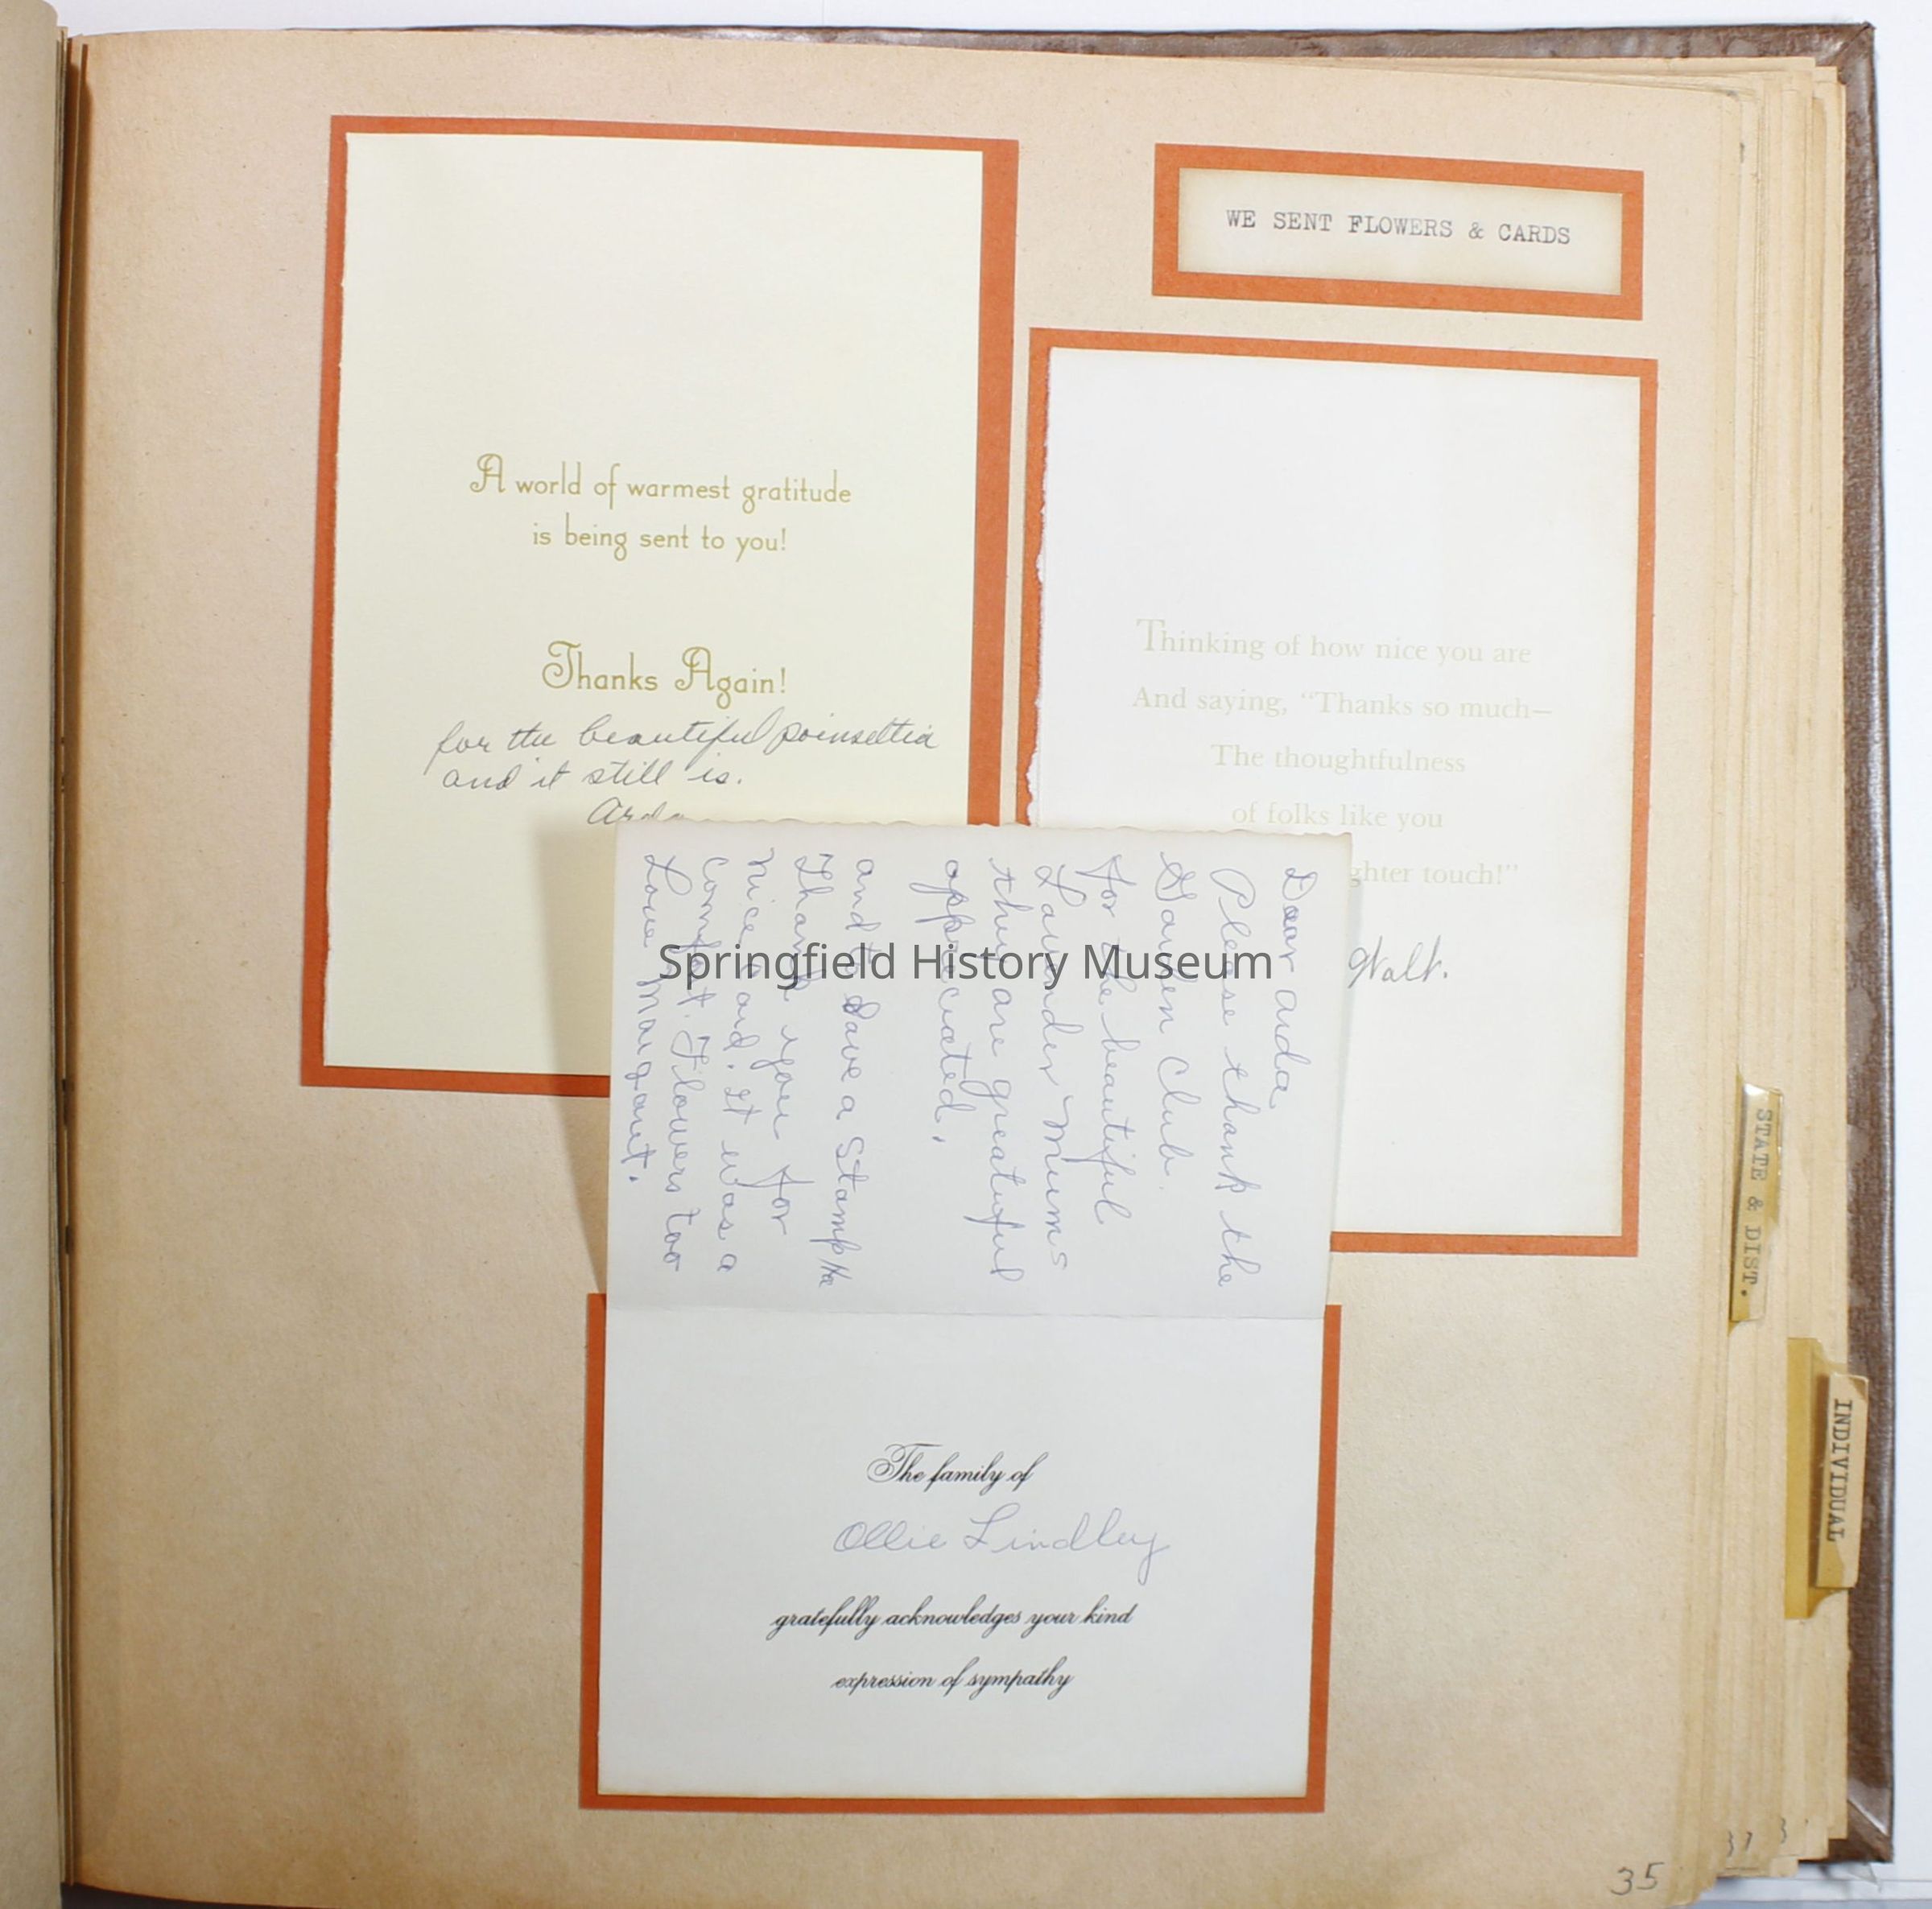 WE SENT FLOWERS & CARDS
A world of warmest gratitude
is being sent to you!
Thanks Again!
for the beautiful poinsettia
and it still is.
Arda
Thinking of how nice you are
And saying, "Thanks so much—
The thoughtfulness
of folks like you
ghter touch!"
Walt.
Dear Arda
Please thank the
Garden Club.
for the beautiful
Lavender Mums
they are greatuful
appreciated.
and to Save a Stamp Ha
Thank you for
Nice Card. It was a
Comfort. Flowers too
Love Margaret.
Springfield History Museum
The family of
Ollie Lindley
gratefully acknowledges your kind
expression of sympathy
STATE & DIST.
INDIVIDUAL
35
37
3